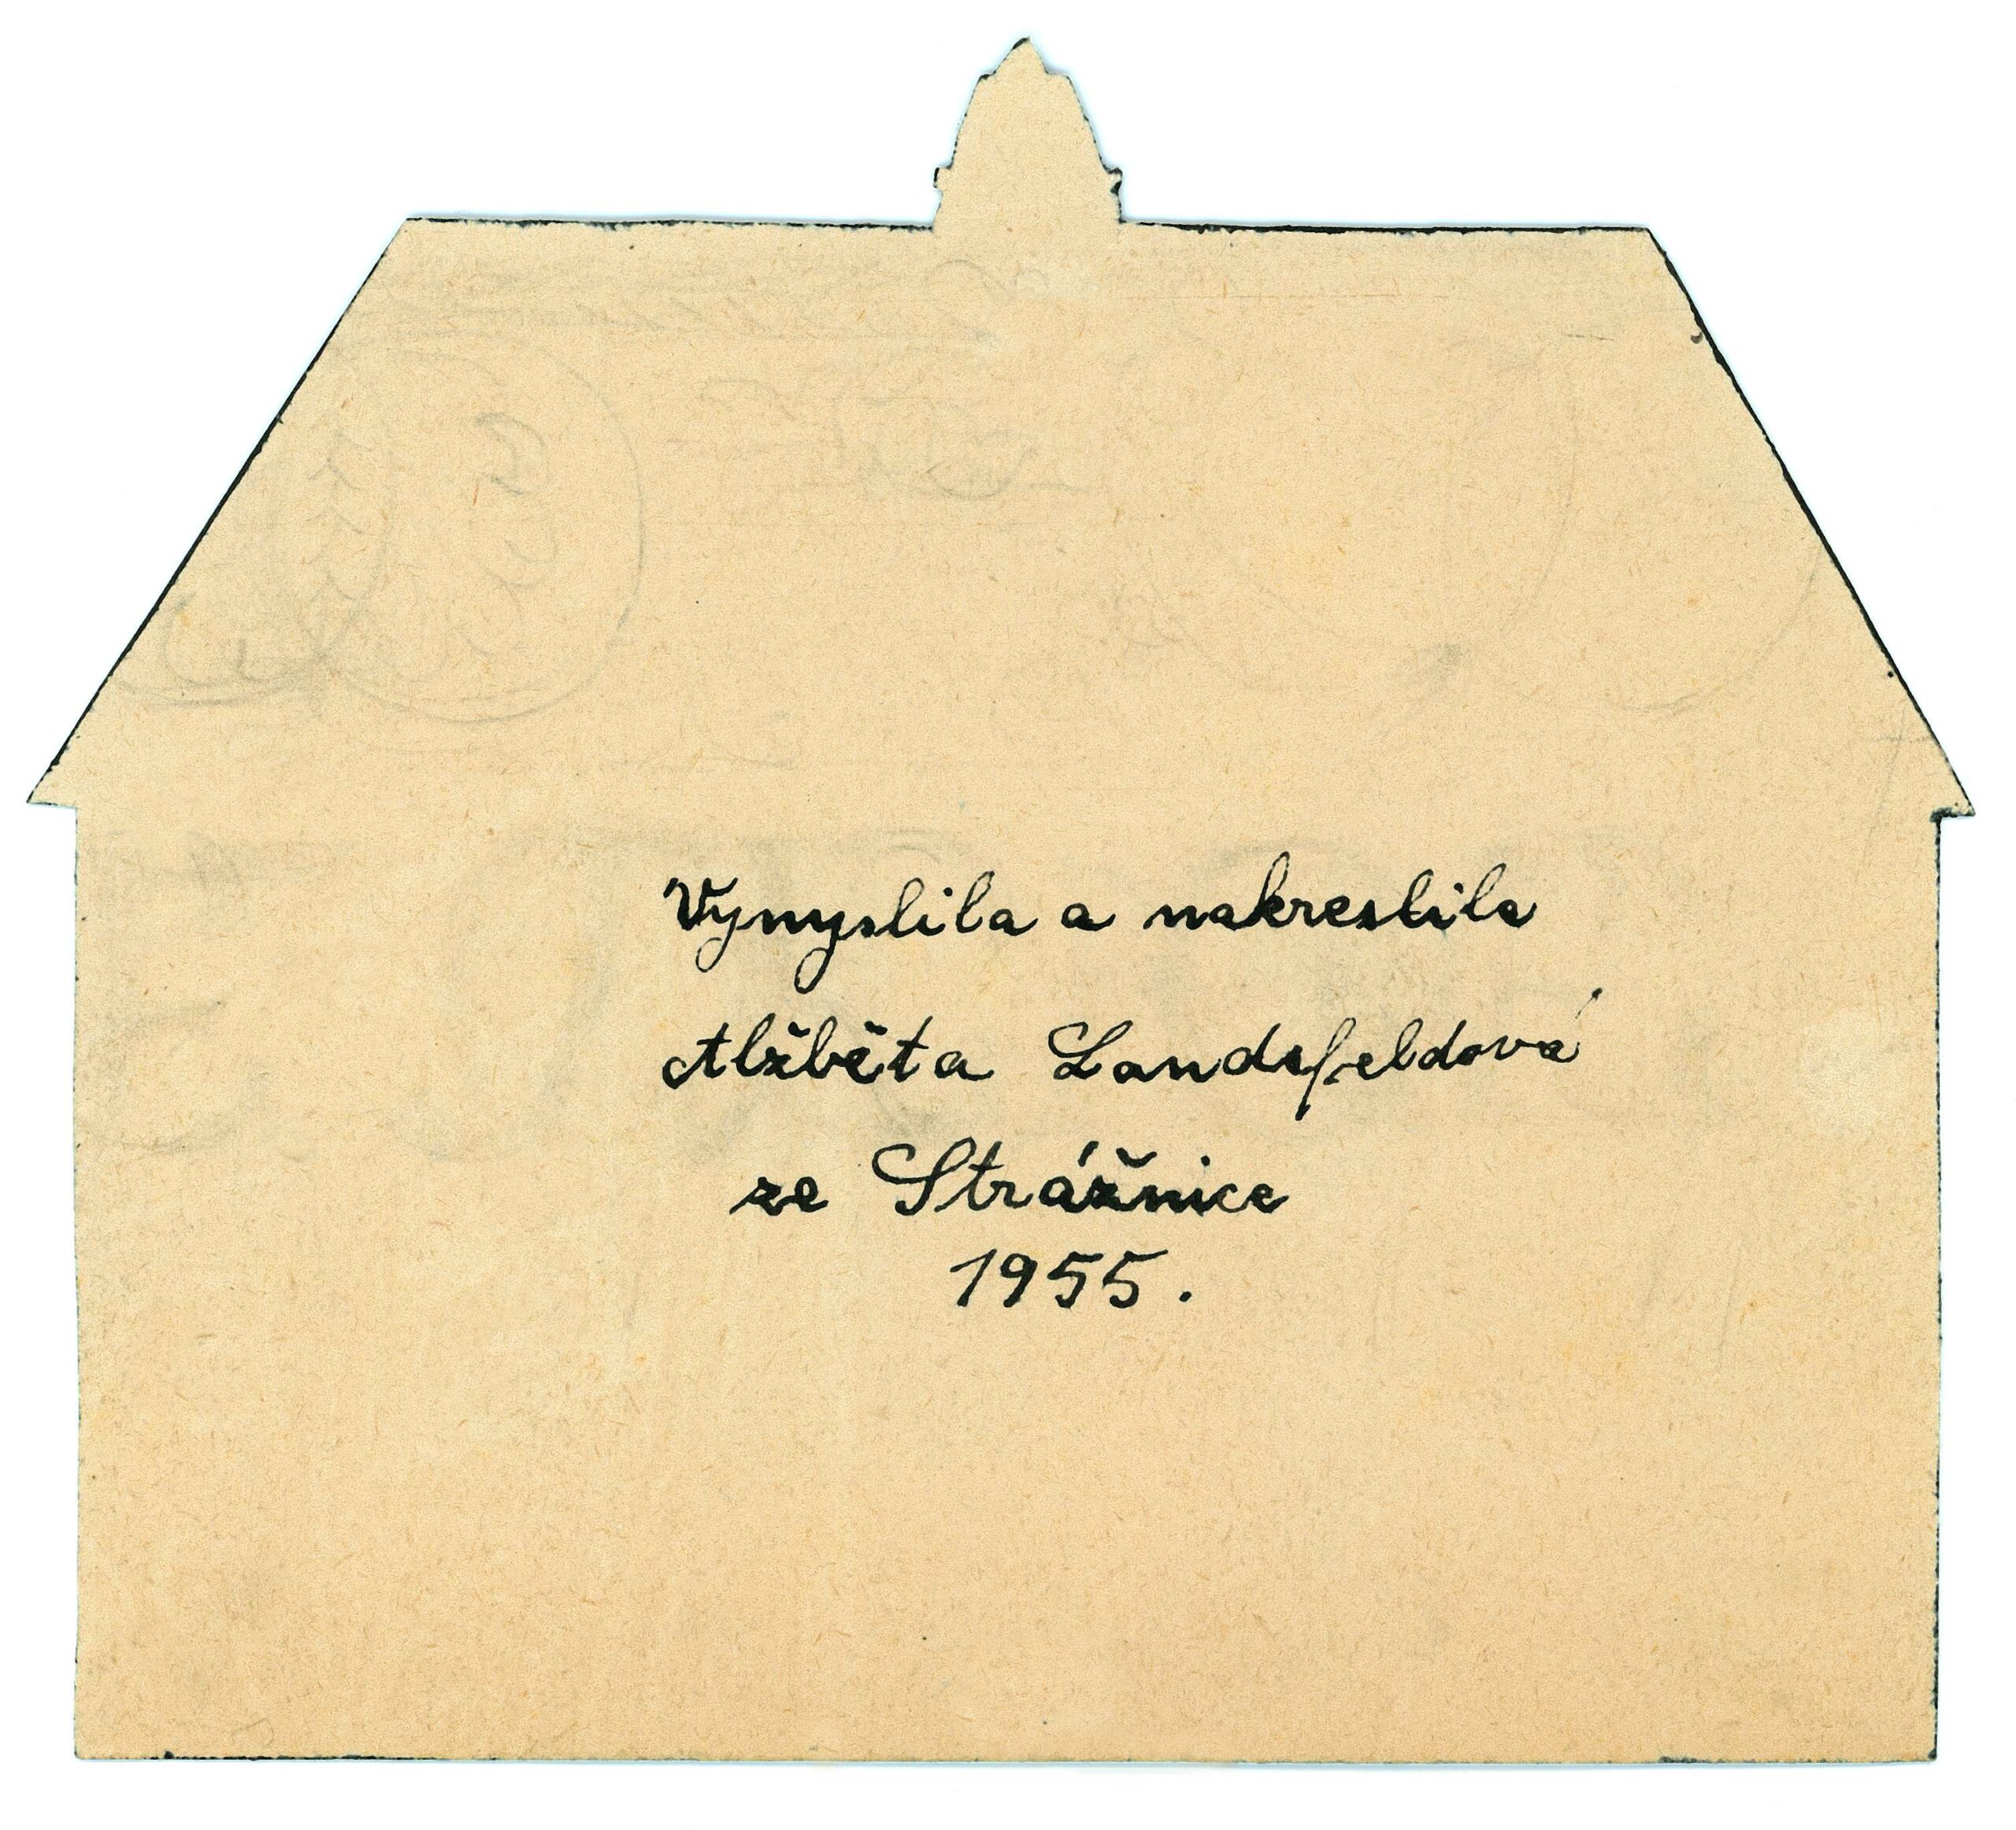 Vymyslila a nakreslila
Alžběta Landsfeldová
ze Strážnice
1955.